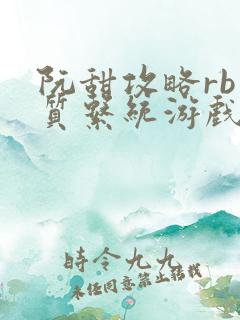 阮甜攻略rb
质系统游戏
時令九九
未经同意禁止转载